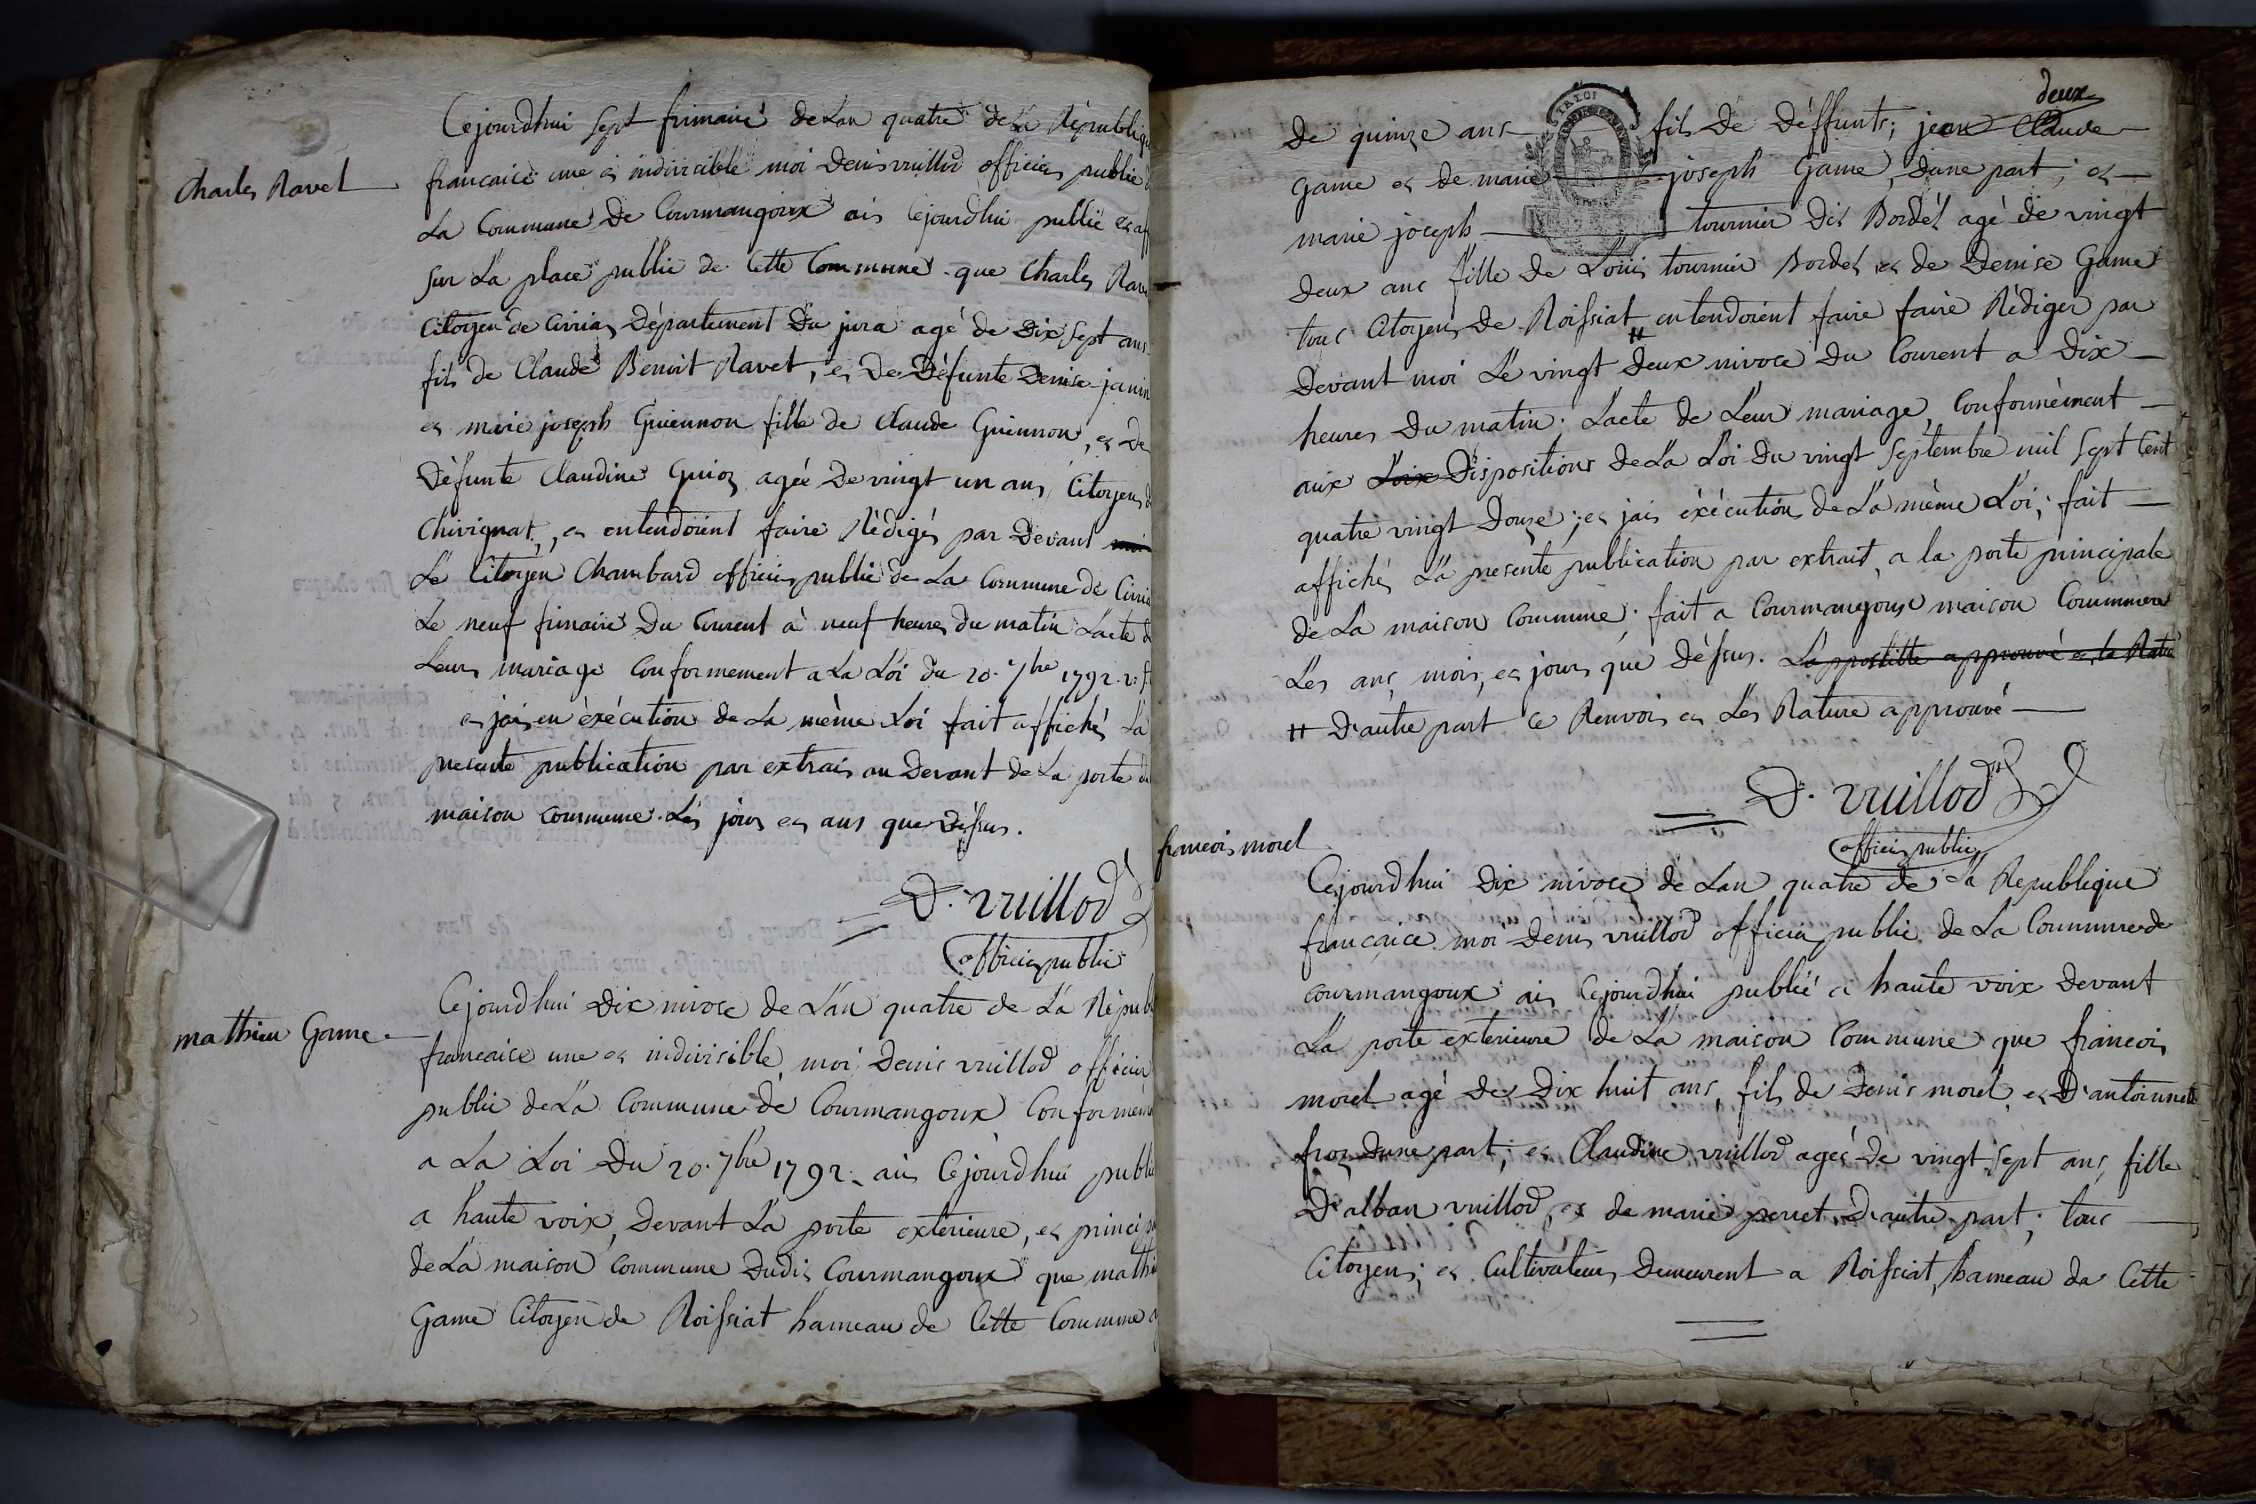 Charles Ravet
Cejourdhui sept frimaire de Lan quatre de La Républiq
francaice une et indivicible moi Denis vuillod officier public d
La Commune de Courmangoux ais Cejourdhui publié et af
sur La place public de Cette Commune que Charles Rav
Citoyen de Civria Département Du jura agé de Dix sept ans
fils de Claude Benoit Ravet, et De Défunte Denise janin
et marie joseph Guiennon fille de Claude Guiennon, et De
Défunte Claudine Guioz agée De vingt un ans, Citoyens d
Chivignat, et entendoient faire Rédigés par Devant moi
Le Citoyen Chambard officier public de La Commune de Civria
Le neuf frimaire Du Courent à neuf heures du matin Lacte d
Leurs mariage Conformement a La Loi du 20. 7bre 1792. v. s
et jais en éxécution de La même Loi fait affichés La
presente publication par extrais au Devant de La porte de
maison commune. Les jours et ans que Dessus.
D. vuillod
officier public
mathieu Game
Cejourdhui Dix nivose de Lan quatre de La Répub
francaise une et indivisible, moi Denis vuillod officier
public de La Commune de Courmangoux Conformém
a La Loi Du 20. 7bre 1792. ais Cejourdhui publi
a haute voix, Devant La porte exterieure, et princip
de La maison Commune Dudit Courmangoux que mathi
Game Citoyen de Roissiat hameau de Cette Commune a
deux
De quinze ans fils De Deffunts; jean Claude
LA LOI
Game et de marie joseph Game, Dune part; et
marie joseph tournier Dit Bordet agé de vingt
Deux ans fille De Louis tournier Bordet et de Denise Game
tous Citoyens De Roissiat # entendoient faire faire Rédiger par
Devant moi Le vingt Deux nivose Du Courent a Dix
heures Du matin. Lacte de Leur mariage, Conformément
aux Loix Dispositions de La Loi du vingt Septembre mil Sept Cent
quatre vingt Douze; et jais éxécution de La même Loi; fait
affichés La presente publication par extrait, a la porte principale
de La maison Commune. fait a Courmangoux maison Commune
Les ans, mois, et jours que Dessus. La postille approuvé et la Ratu
# D'autre part Ce Renvois et Les Rature approuvé
D. vuillod
officier public
francois morel
Cejourdhui Dix nivose de Lan quatre de La Republique
francaice moi Denis vuillod officier public de La Commune de
courmangoux ais Cejourdhui publié a haute voix Devant
La porte exterieure de La maison Commune que francois
morel agé de Dix huit ans, fils de Denis morel, et D'antoinnette
froz Dune part; et Claudine vuillod ageé de vingt sept ans, fille
D'alban vuillod, et de marie perret, D'autre part; tous
Citoyens; et Cultivateurs Demeurent a Roissiat, hameau de Cette